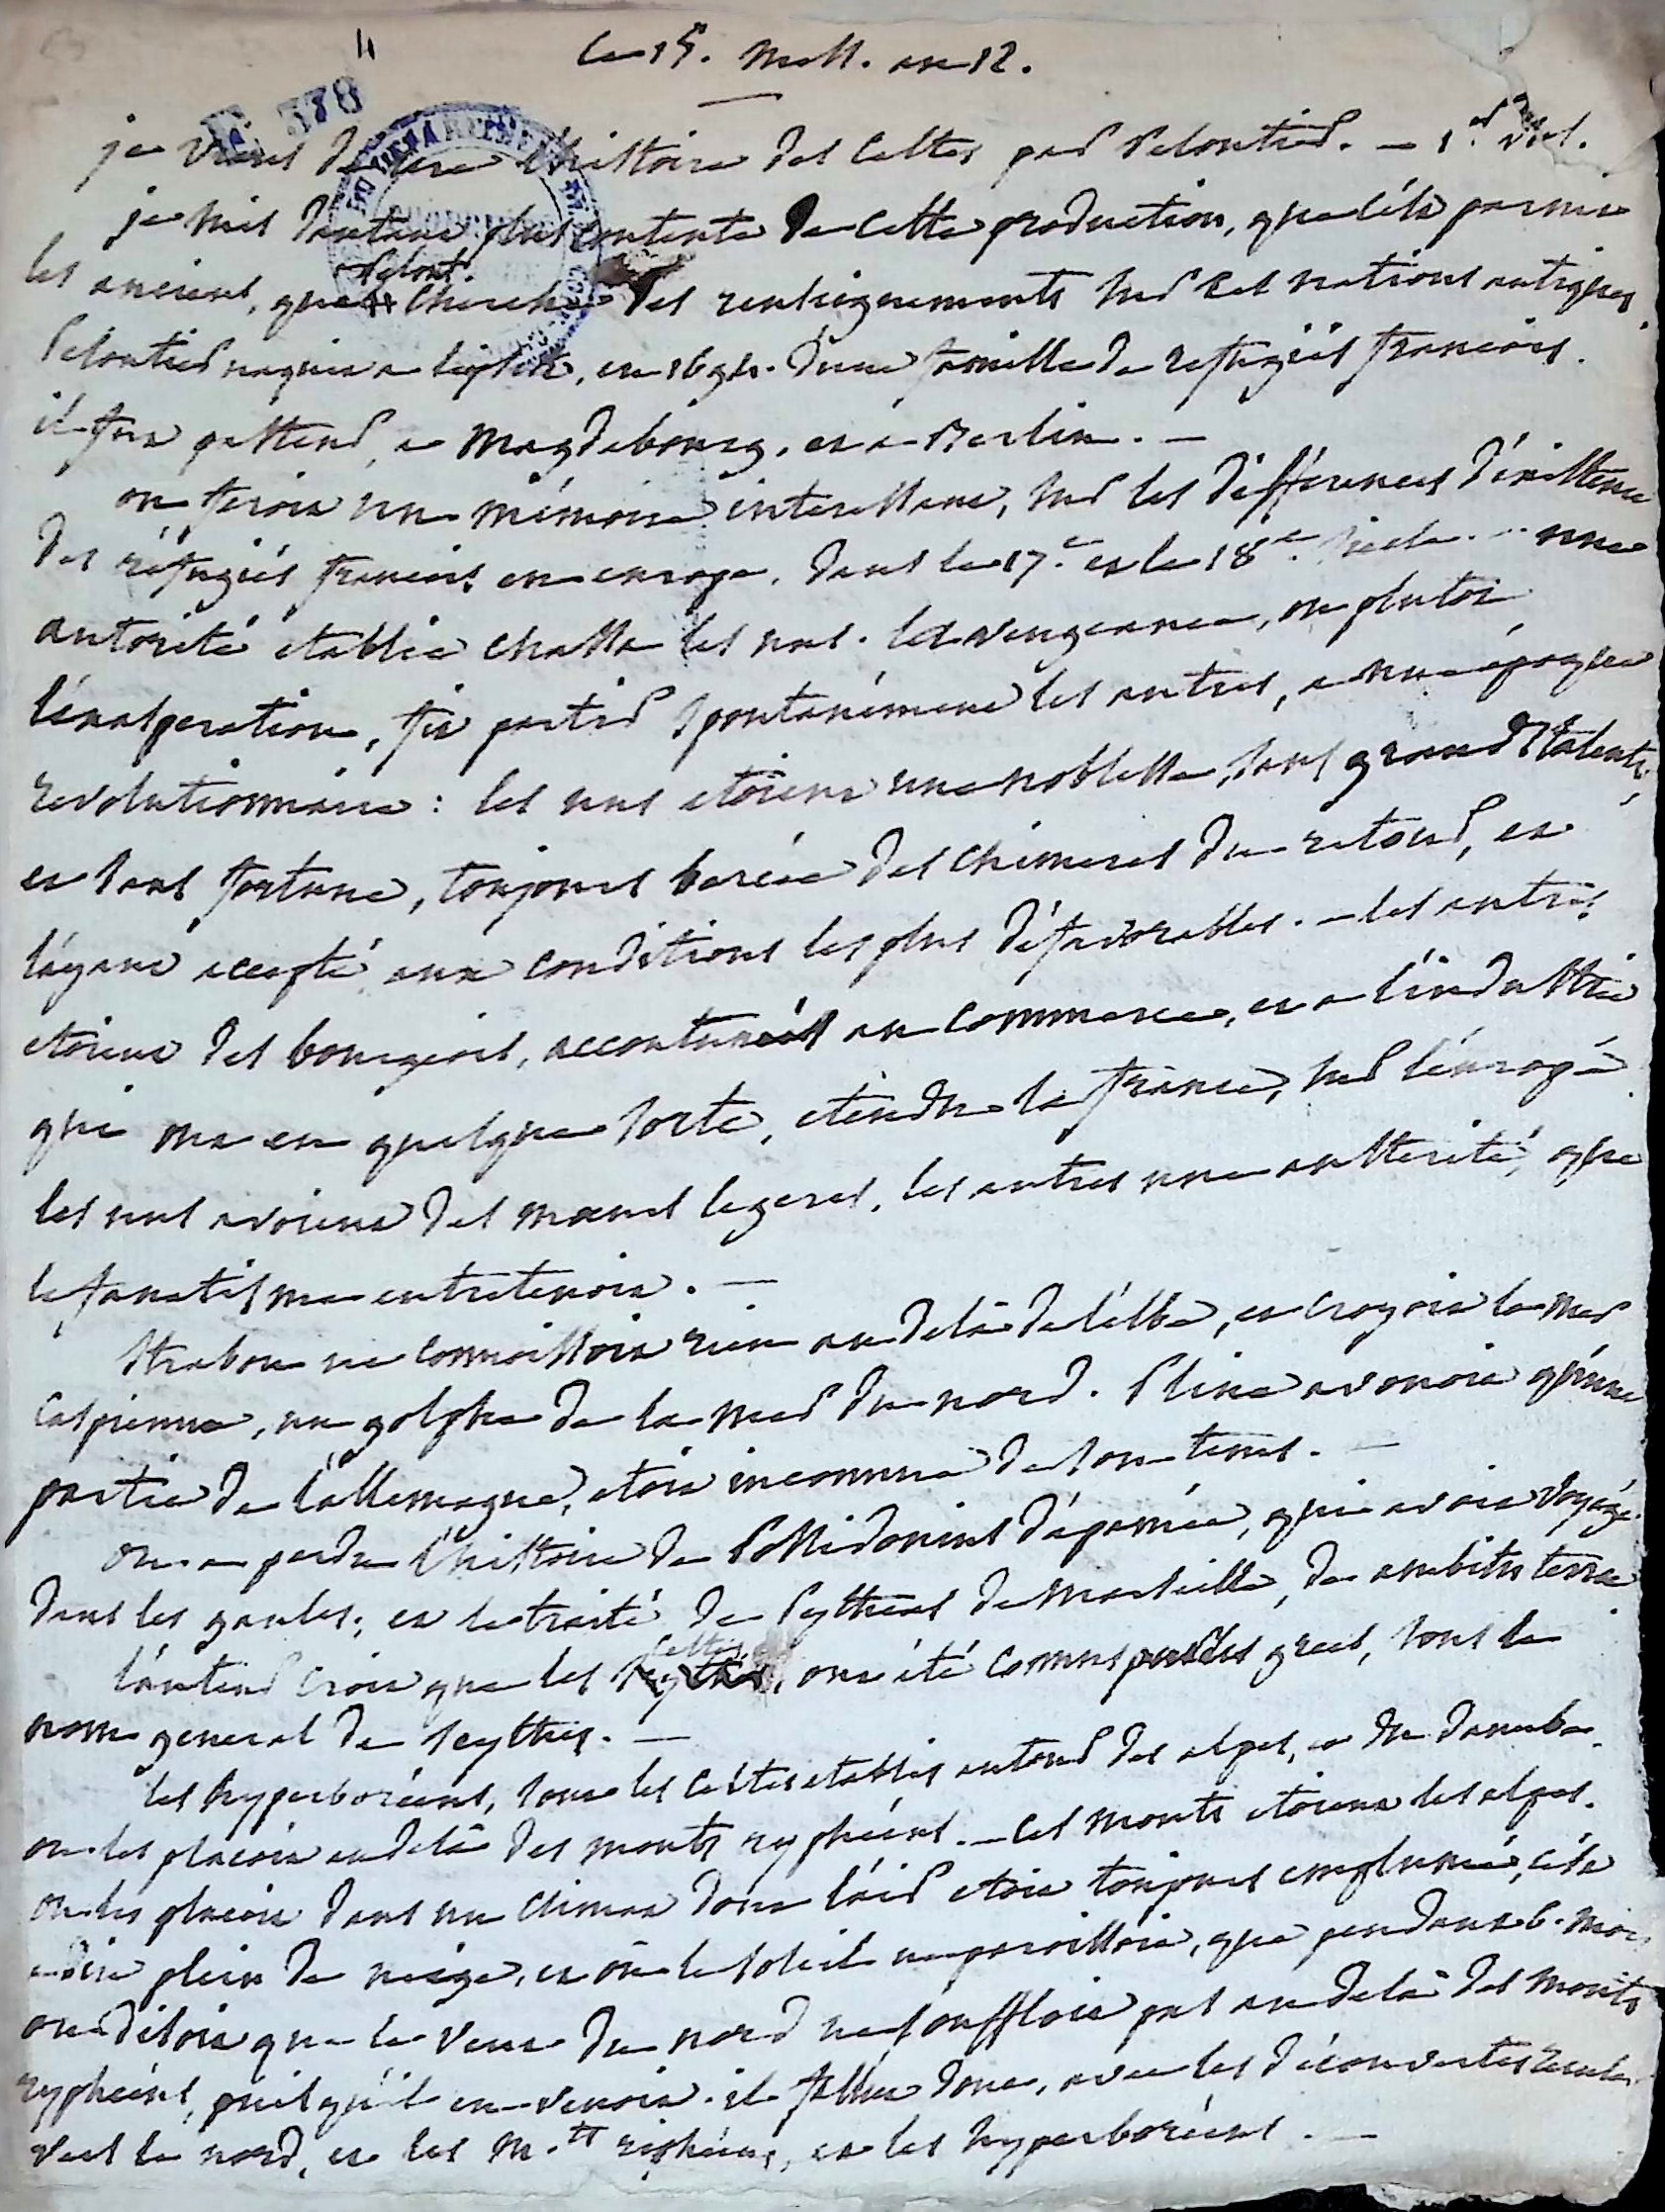 4
Le 15. Mess. an 12.
E 378
je viens de lire l'histoire des Celtes par Peloutier. — 1.er vol.
je suis d'autant plus contente de cette production, que c'est parmi
les anciens, que Pelout. cherche des renseignements sur ces nations antiques.
Peloutier naquit a leipsick, en 1694. d'une famille de refugiés françois.
il fut pasteur, a Magdebourg, et a Berlin. —
on feroit un mémoire interessant, sur les différences d'existence
des réfugiés françois en europe, dans le 17.e et le 18.e siecle. — une
autorité etablie chassa les uns. la vengeance, ou plutot
l'exasperation, fit partir spontanément les autres, a une époque
revolutionnaire : les uns etoient une noblesse, sans grands talents,
et sans fortune, toujours bercée des chimeres du retour, et
l'ayant accepté aux conditions les plus défavorables. — les autres
etoient des bourgeois, accoutumés au commerce, et a l'industrie
qui ont en quelque sorte, etendu la france, sur l'europe.
les uns avoient des moeurs legeres, les autres une austerité, que
le fanatisme entretenoit. —
Strabon ne connoissoit rien au dela de l'elbe, et croyoit la mer
Caspienne, un golphe de la mer du nord. Pline avouoit qu'une
partie de l'allemagne, etoit inconnue de son tems. —
on a perdu l'histoire de Possidonius d'apamée, qui avoit voyagé
dans les gaules, et le traité de Pytheas de Marseille, de ambitu terrae
l'auteur croit que les Celtes, ont été connus par les grecs, sous le
nom general de scythes. —
les hyperboréens, sont les Celtes etablis autour des alpes, et du danube.
on les placoit au dela des monts ryphéens. — ces monts etoient les alpes.
on les placoit dans un climat dont l'air etoit toujours emplumé, c'est
a dire plein de neige, et où le soleil ne paroissoit, que pendant 6. mois
on disoit que le vent du nord ne souffloit pas au dela des monts
ryphéens, puisqu'il en venoit. il fallut donc, avec les découvertes reculer
vers le nord, et les M.ts riphéens, et les hyperboréens. —